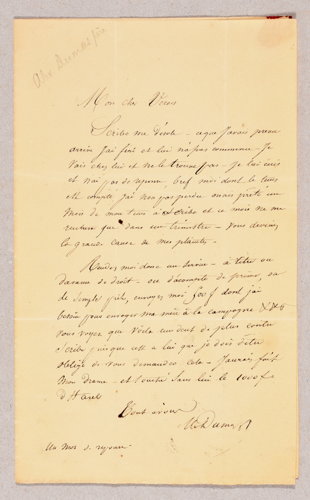 Alex Dumas fils
Mon cher Véron
Scribe me désole – ce que j'avais prévu
arrive j'ai fini et lui n'a pas commencé je
vais chez lui et ne le trouve pas – je lui écris
et n'ai pas de réponse, bref moi dont le temps
est compté j'ai non pas perdu mais prêté un
mois de mon temps à Scribe et ce mois ne me
rentrera que dans un trimestre – vous devinez
la grande cause de mes plaintes.
Rendez moi donc un service – à titre ou
d'avance de droit – ou d'acompte de prime, ou
de simple prêt, envoyez moi dont j'ai
besoin pour envoyer ma mère à la campagne &&&
vous voyez que voilà un de plus contre
Scribe puisque c'est à lui que je dois d'être
obligé de vous demander cela – J'aurais fait
mon drame – et touché sans lui le 1000 f
d'Harel
Tout à vous
Alex Dumas
Un mot de réponse